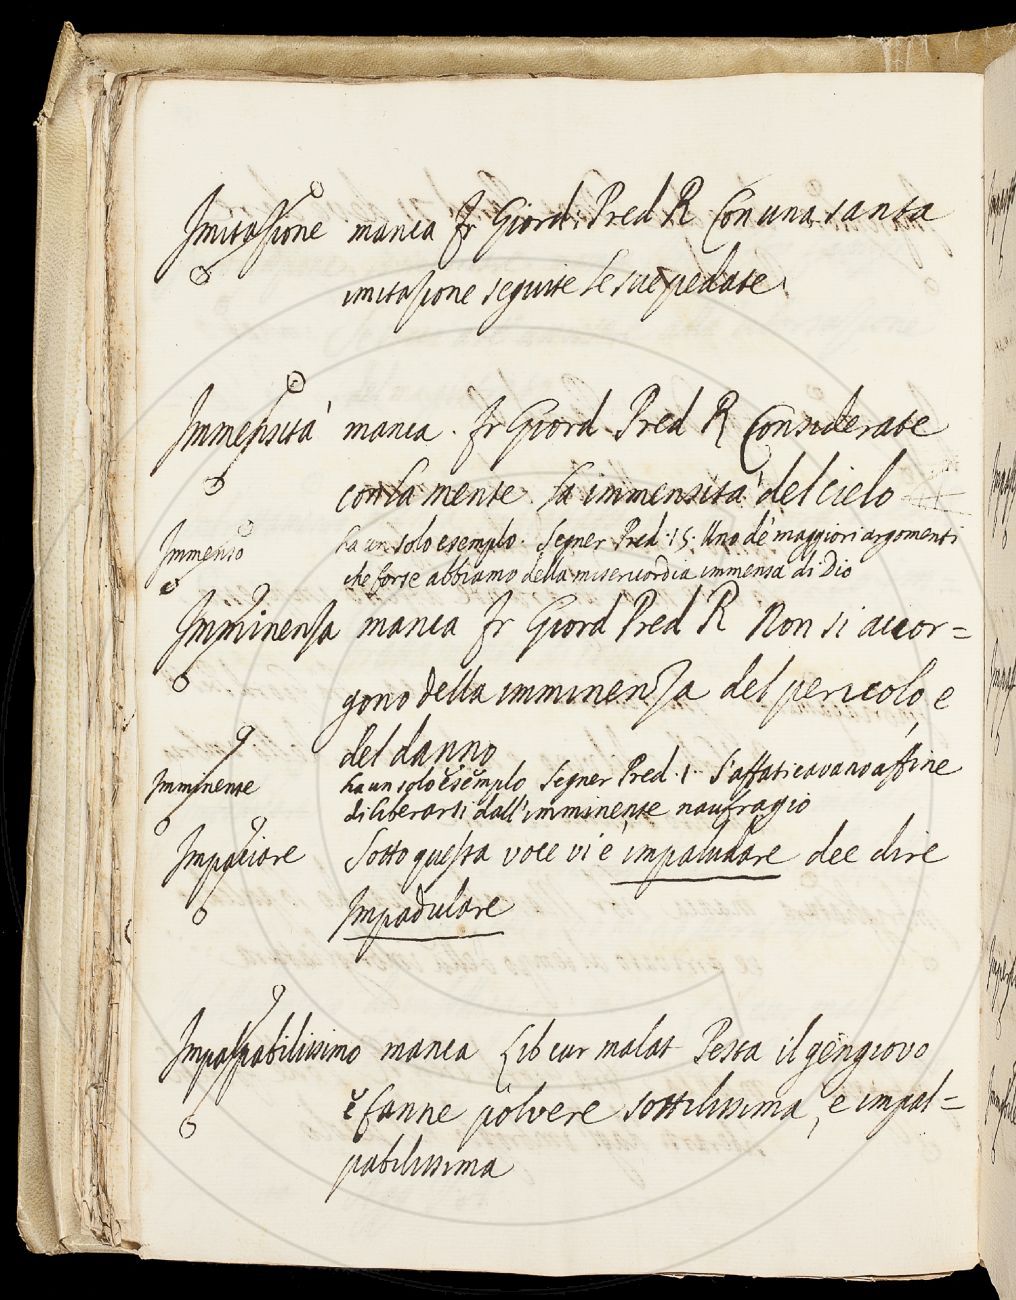 Imitazione manca Fr Giord. Pred R Con una santa
imitazione seguite le sue pedate
Immensità manca. Fr Giord Pred R Considerate
con la mente la immensità del cielo
Immenso ha un solo esemplo. Segner Pred. 15. Uno de' maggiori argomenti
che forse abbiamo della misericordia immensa di Dio
Imminenza manca Fr Giord Pred R Non si accor=
gono della imminenza del pericolo e
del danno
Imminente ha un solo esemplo Segner Pred. 1. S'affaticavano affine
di liberarsi dall'imminente naufragio
Sotto questa voce vi è impaludare dee dire
Impadulare
Impalpabilissimo manca Lib cur malat Pesta il gengiovo
e fanne polvere sottilissima, e impal=
pabilissima